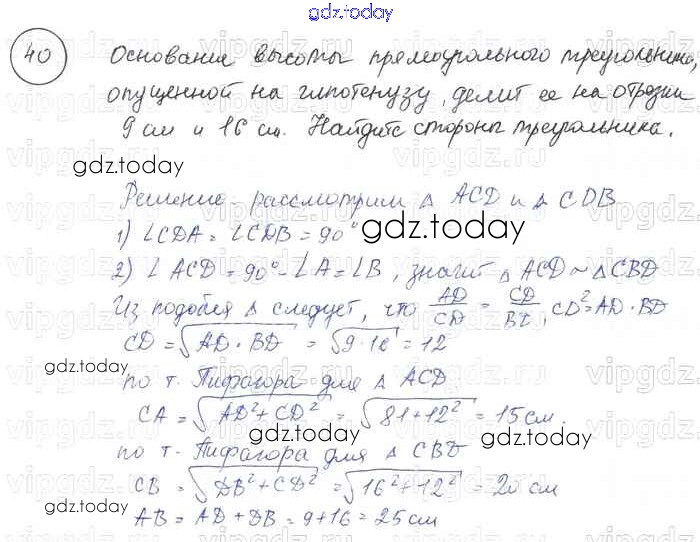 gdz.today
40 Основание высоты прямоугольного треугольника,
опущенной на гипотенузу, делит ее на отрезки
9 см и 16 см. Найдите стороны треугольника.
gdz.today
Решение - рассмотрим Δ ACD и Δ CDB
1) ∠CDA = ∠CDB = 90°
gdz.today
2) ∠ACD = 90° - ∠A = ∠B, значит Δ ACD ~ Δ CBD
Из подобия Δ следует, что AD/CD = CD/BD, CD² = AD · BD
CD = √AD · BD = √9 · 16 = 12
gdz.today
по т. Пифагора для Δ ACD
CA = √AD² + CD² = √81 + 12² = 15 см.
gdz.today
gdz.today
по т. Пифагора для Δ CBD
CB = √DB² + CD² = √16² + 12² = 20 см
AB = AD + DB = 9 + 16 = 25 см
gdz.today